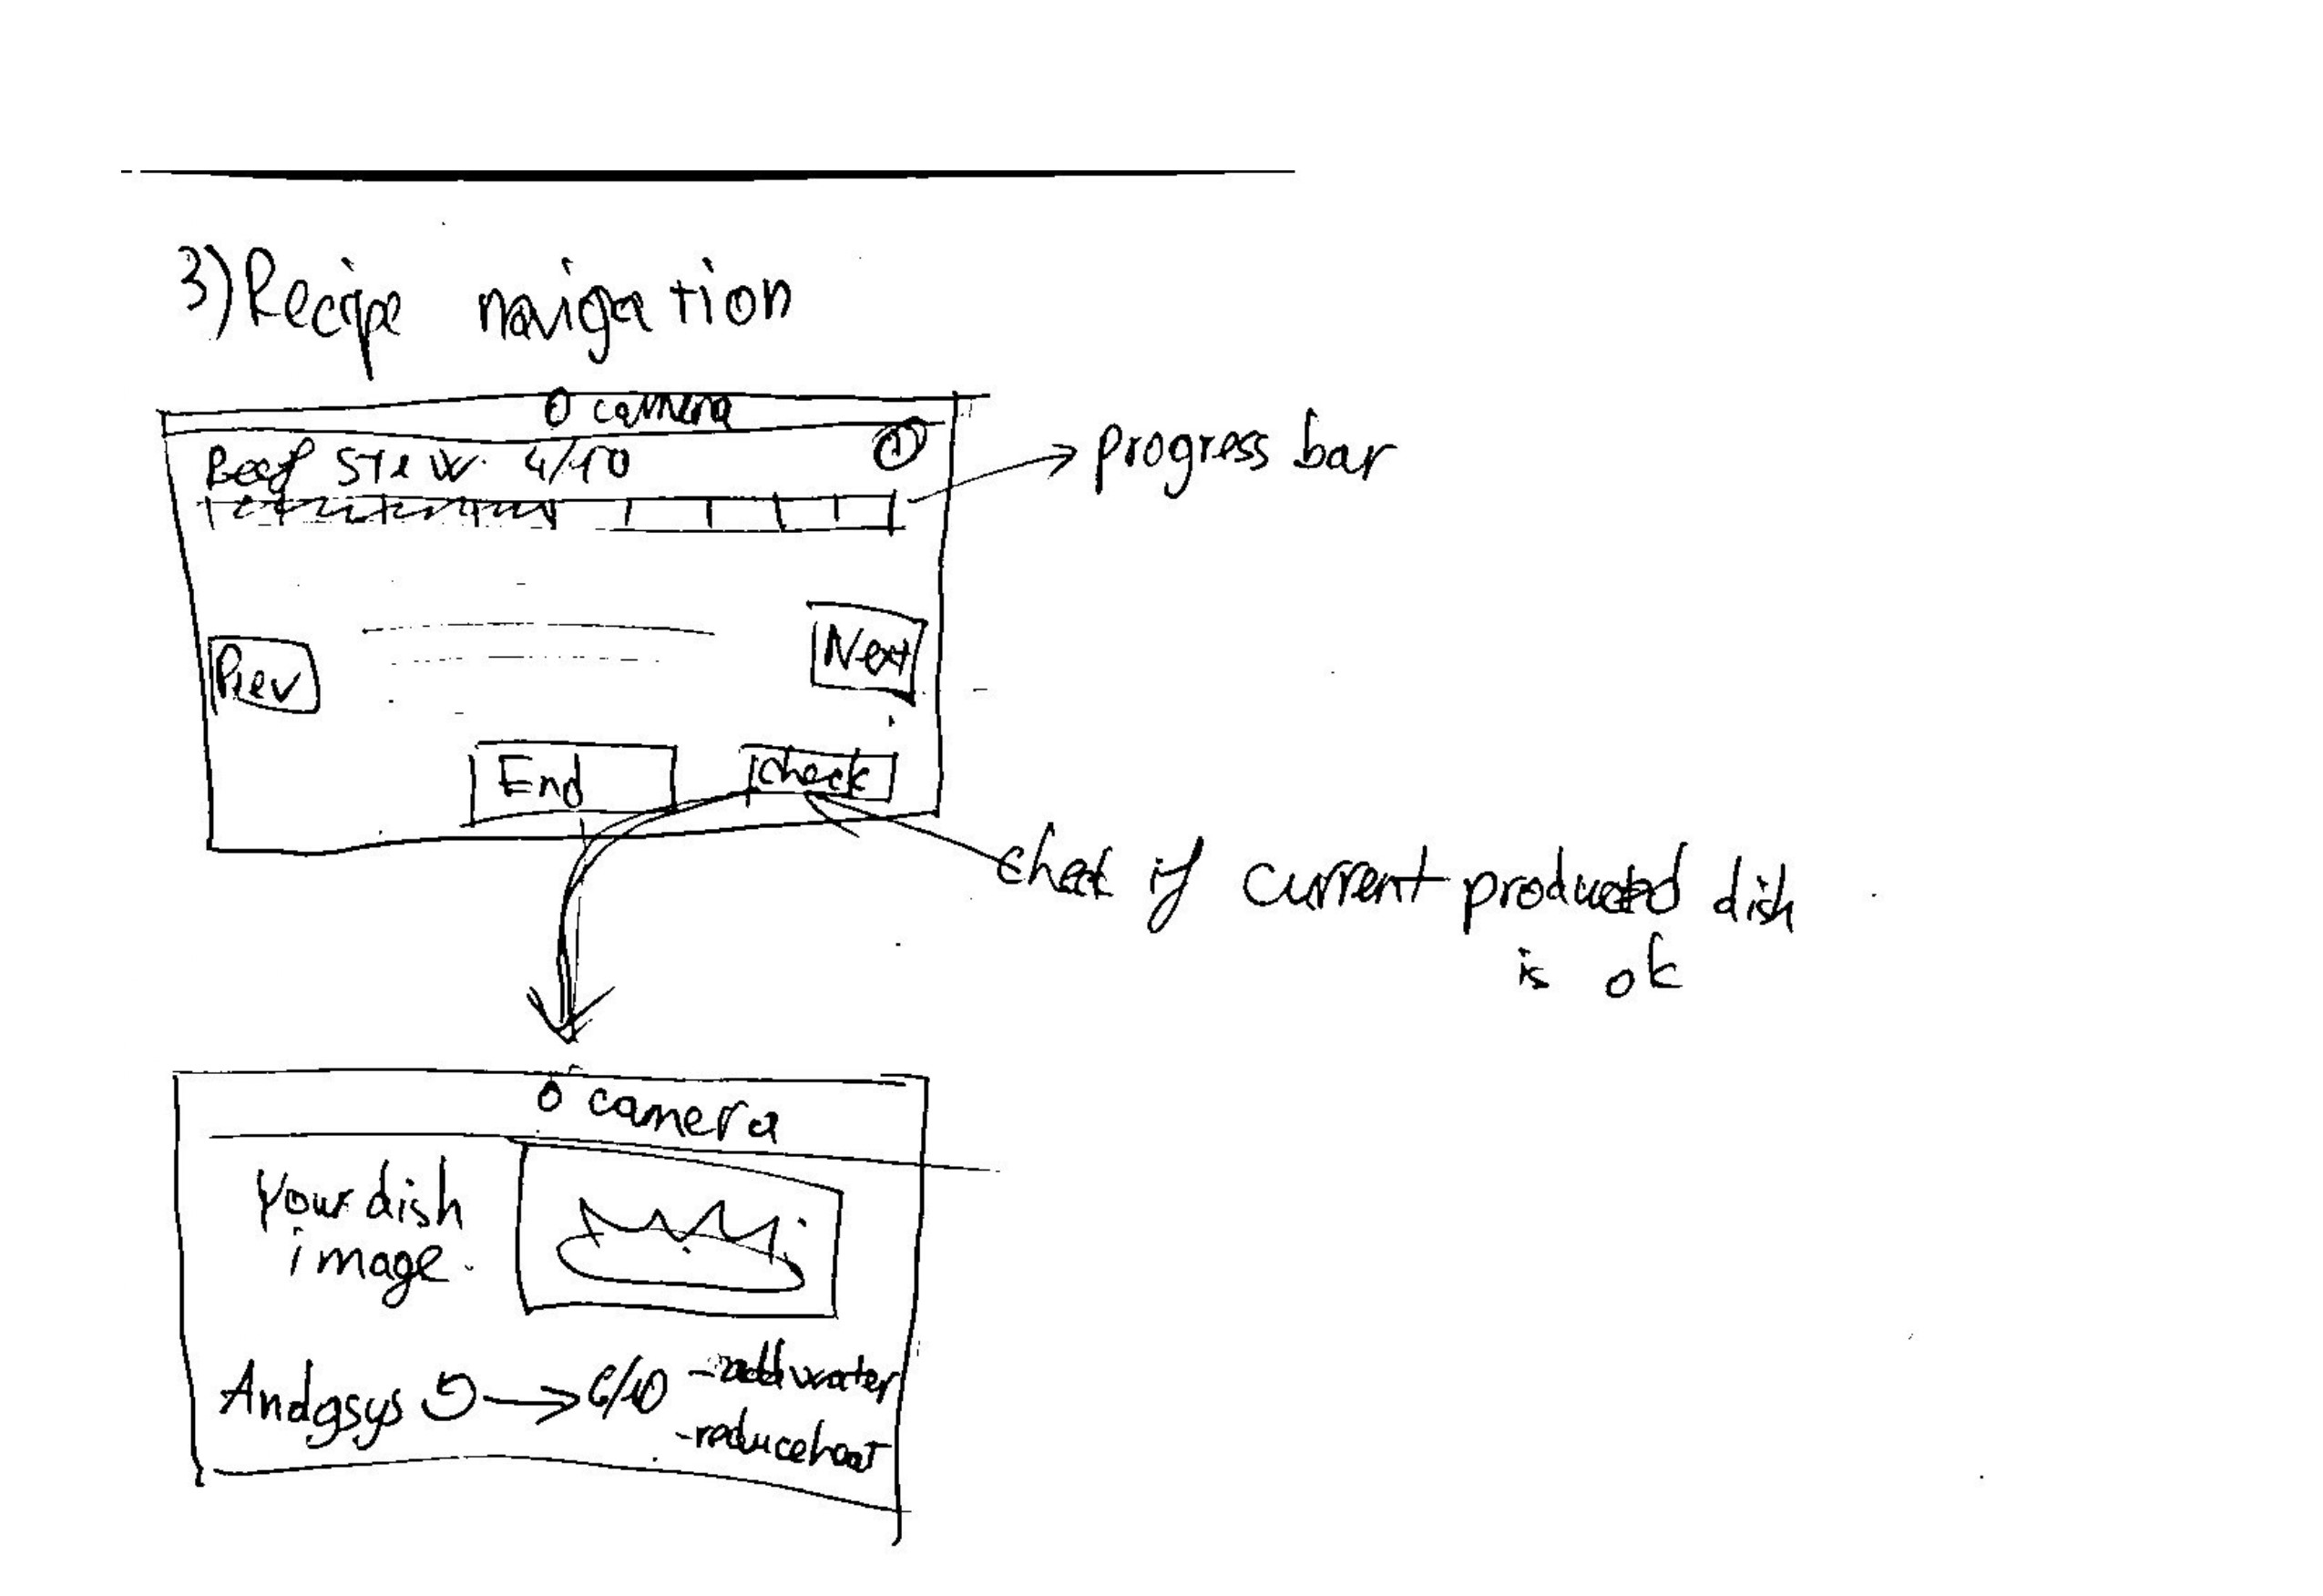 3) Recipe navigation
O camera
Beef Stew 4/10
progress bar
Prev
Next
End
check
check if current producted dish
is ok
camera
Your dish
image.
6/10 -add water
-reduce heat